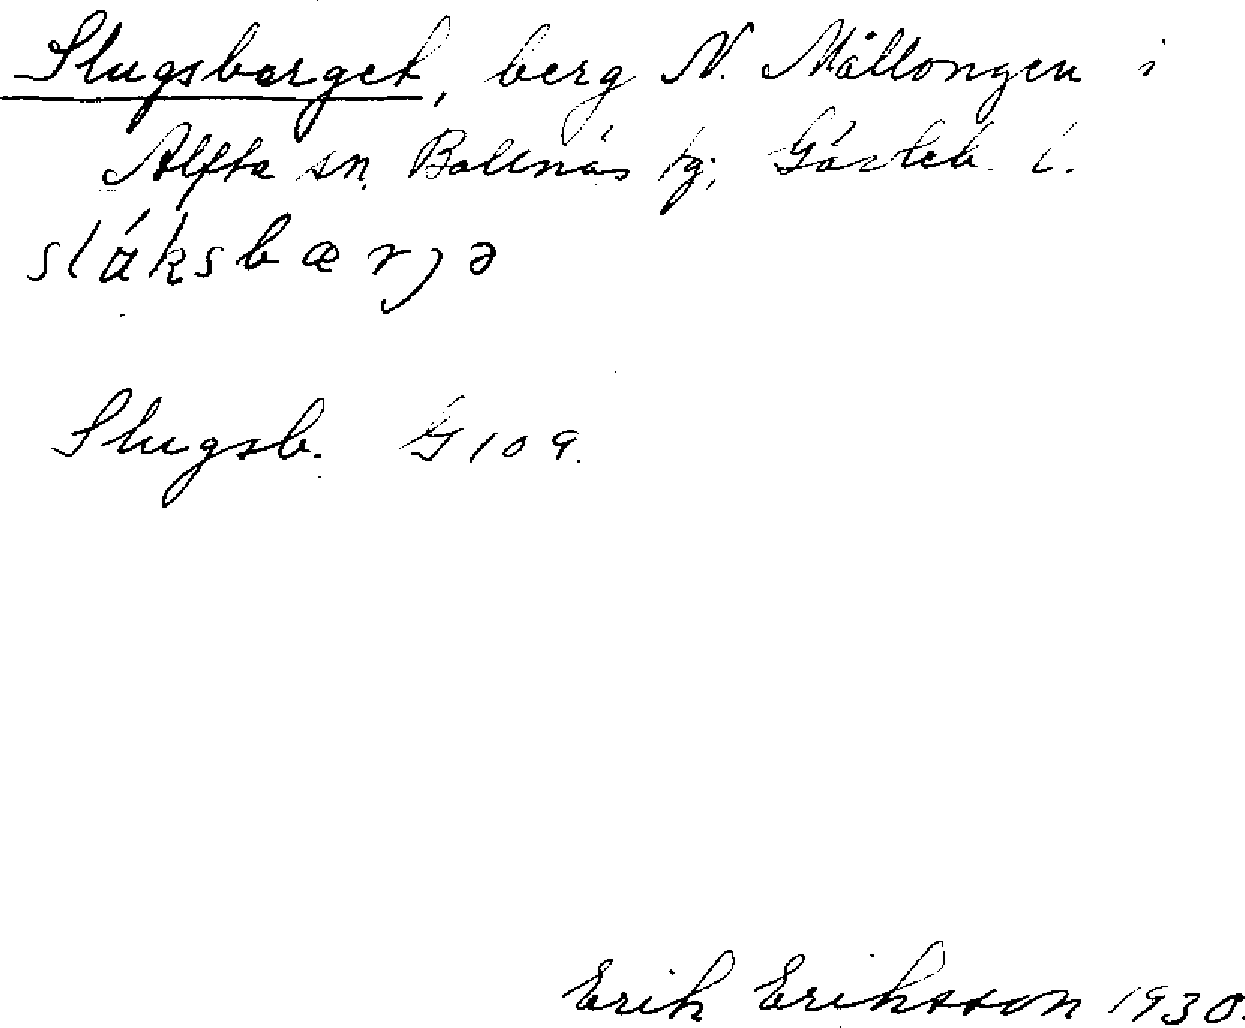 Slugsberget, berg N. Mållongen i
Alfta sn. Bollnäs tg; Gävleb. l.
sláksbærjə
Slugsb. G 109.
Erik Eriksson 1930.